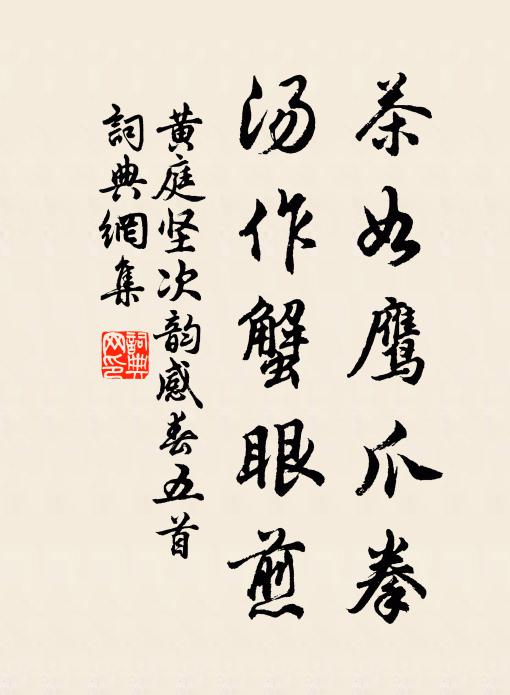 茶如鹰爪拳
汤作蟹眼煎
黄庭坚次韵感春五首
詞典網集
詞典网印